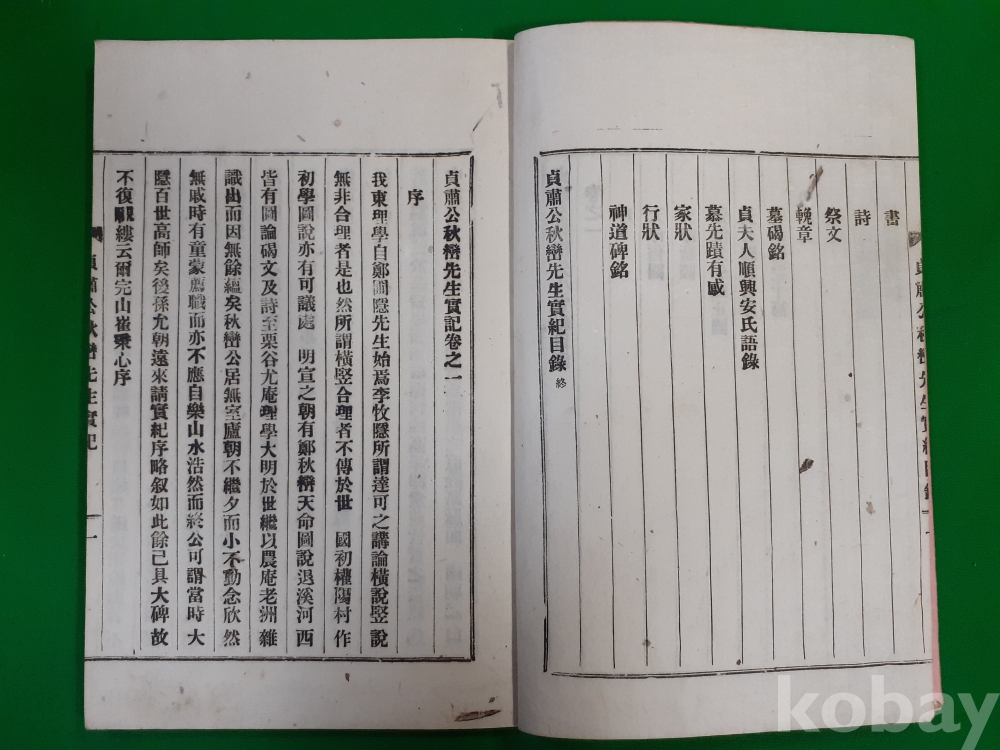 書
詩
祭文
輓章
墓碣銘
貞夫人順興安氏語錄
慕先蹟有感
家狀
行狀
神道碑銘
貞肅公秋巒先生實紀目錄 終
貞肅公秋巒先生實記卷之一
序
我東理學自鄭圃隱先生始焉李牧隱所謂達可之講論橫說竪說
無非合理者是也然所謂橫竪合理者不傳於世 國初權陽村作
初學圖說亦有可議處 明宣之朝有鄭秋巒天命圖說退溪河西
皆有圖論碣文及詩至栗谷尤庵理學大明於世繼以農庵老洲雜
識出而因無餘蘊矣秋巒公居無室廬朝不繼夕而小不動念欣然
無戚時有童蒙薦職而亦不應自樂山水浩然而終公可謂當時大
隱百世高師矣後孫允朝遠來請實紀序略叙如此餘已具大碑故
不復覼縷云爾完山崔秉心序
貞肅公秋巒先生實記 一
kobay